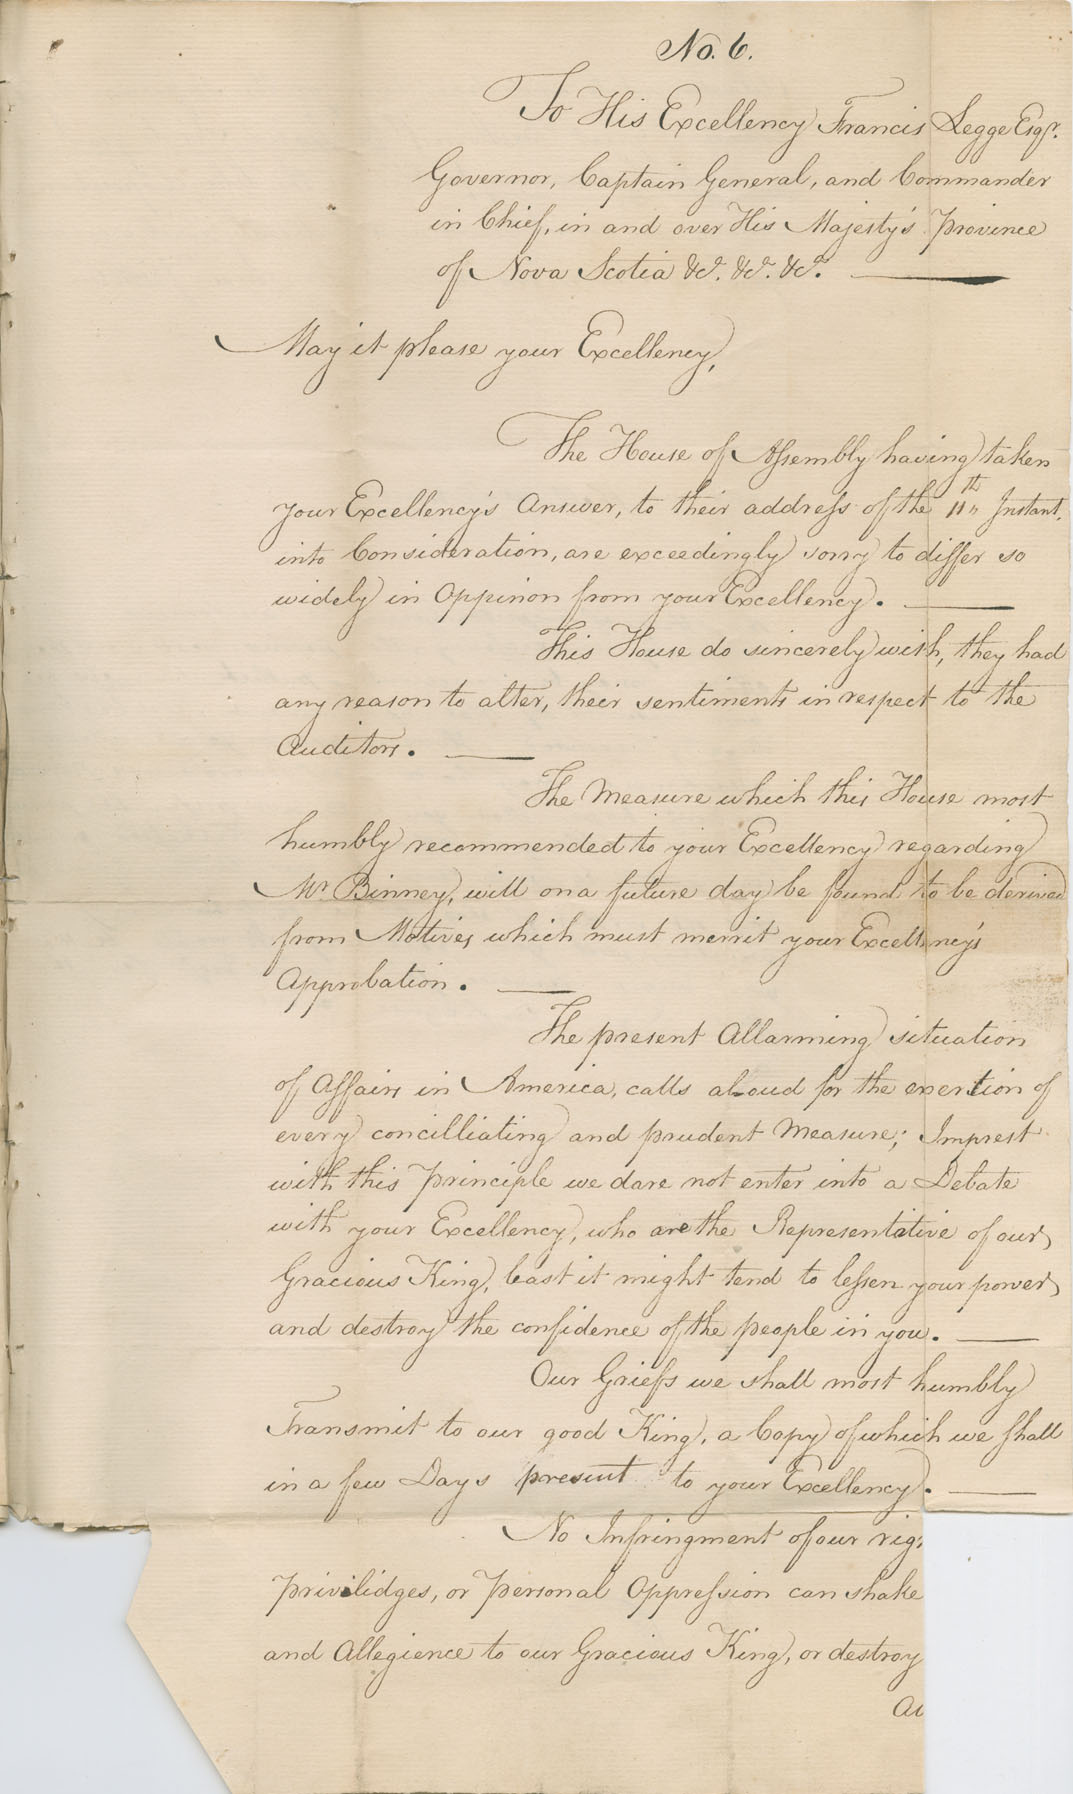 No. 6.
To His Excellency Francis Legge Esqr.
Governor, Captain General, and Commander
in Chief, in and over His Majesty's Province
of Nova Scotia &c. &c. &c.
May it please your Excellency,
The House of Assembly having taken
your Excellency's Answer, to their address of the 11th Instant.
into Consideration, are exceedingly sorry to differ so
widely in Oppinion from your Excellency.
This House do sincerely wish, they had
any reason to alter, their sentiments in respect to the
Auditors.
The Measure which this House most
humbly recommended to your Excellency regarding
Mr Binney, will on a future day be found to be derived
from Motives which must merrit your Excellency's
Approbation.
The present Allarming situation
of Affairs in America, calls aloud for the exertion of
every concilliating and prudent Measure; Imprest
with this Principle we dare not enter into a Debate
with your Excellency, who are the Representative of our
Gracious King, least it might tend to lessen your power
and destroy the confidence of the people in you.
Our Griefs we shall most humbly
Transmit to our good King, a Copy of which we shall
in a few Days present to your Excellency.
No Infringment of our rig
Privilidges, or Personal Oppression can shake
and Allegience to our Gracious King, or destroy